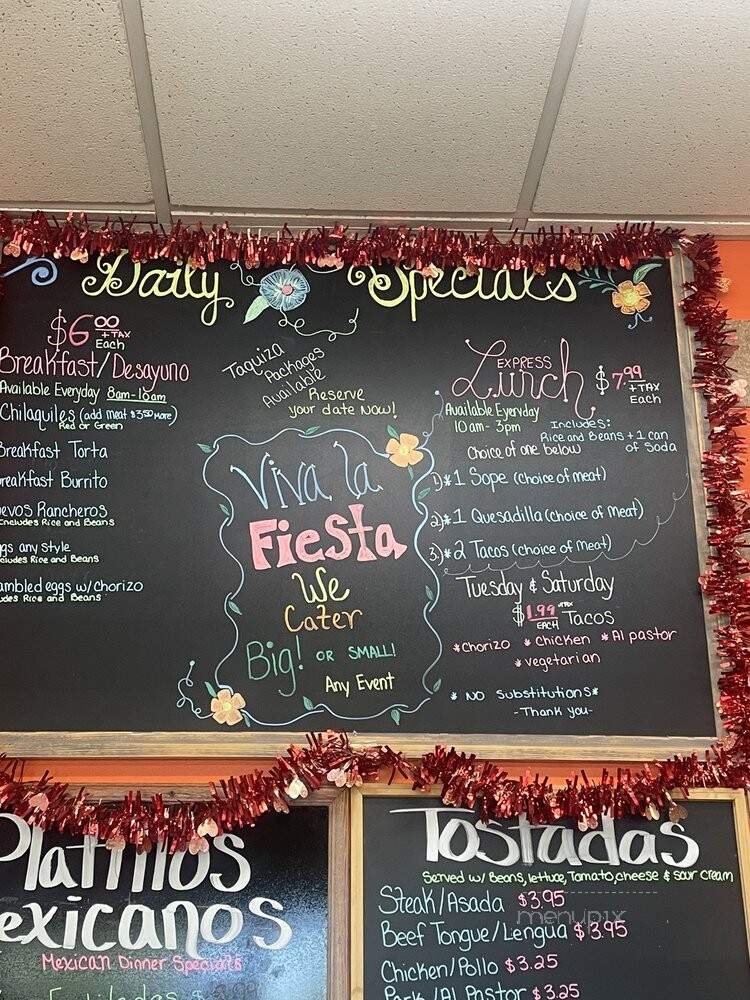 Daily Specials
$6.00 + TAX
Each
Breakfast/Desayuno
Available Everyday 8am-10am
Chilaquiles (add meat $3.50 more)
Red or Green
Breakfast Torta
Breakfast Burrito
evos Rancheros
ncludes Rice and Beans
gs any style
cludes Rice and Beans
ambled eggs w/chorizo
udes Rice and Beans
Taquiza
Packages
Available
Reserve
your date Now!
Viva la
Fiesta
We
Cater
Big! OR SMALL!
Any Event
EXPRESS
Lunch $7.99 + TAX
Each
Available Everyday
10am-3pm
Includes:
Rice and Beans + 1 can
of Soda
Choice of one below
1)* 1 Sope (choice of meat)
2)* 1 Quesadilla (choice of meat)
3)* 2 Tacos (choice of meat)
Tuesday & Saturday
$1.99 +TAX EACH Tacos
*Chorizo *Chicken *Al pastor
*vegetarian
* NO Substitutions*
-Thank you-
Platillos
exicanos
Mexican Dinner Specials
Tostadas
Served w/ Beans, lettuce, Tomato, cheese & sour cream
Steak/Asada $3.95
Beef Tongue/Lengua $3.95
Chicken/Pollo $3.25
Pork/Al Pastor $3.25
menupix